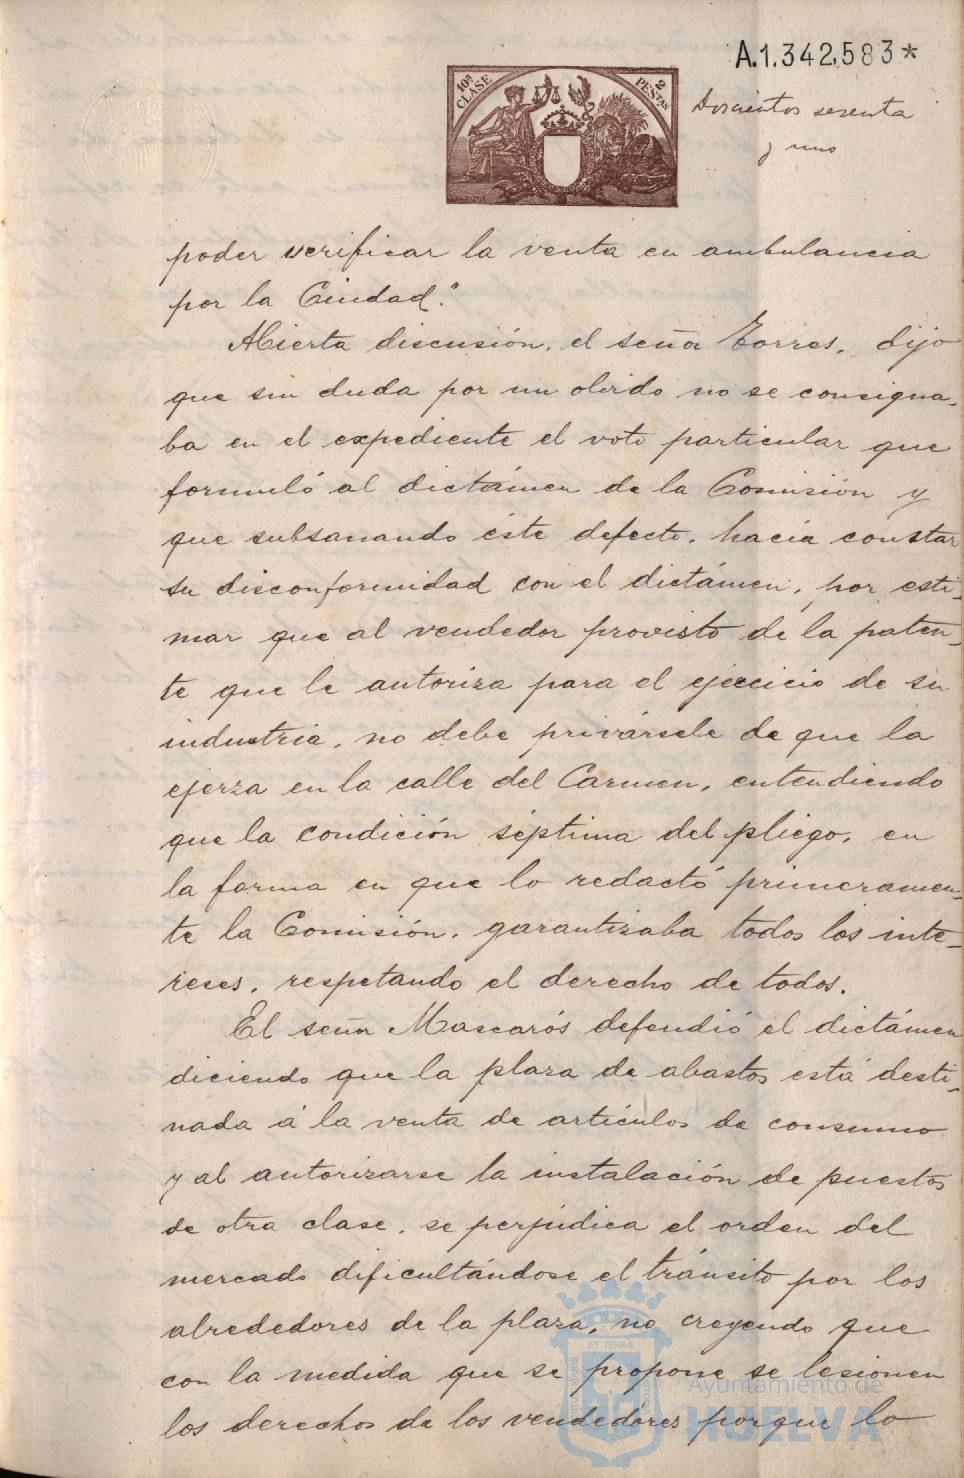 A.1.342,583*
10ª CLASE
2 PESTAS
Doscientos sesenta
y uno
poder verificar la venta en ambulancia
por la Ciudad."
Abierta discusión, el señor Torres, dijo
que sin duda por un olvido no se consigna-
ba en el expediente el voto particular que
formuló al dictámen de la Comisión y
que subsanando éste defecto, hacía constar
su disconformidad con el dictámen, por esti-
mar que al vendedor provisto de la paten-
te que le autoriza para el ejercicio de su
industria, no debe privársele de que la
ejerza en la calle del Carmen, entendiendo
que la condición séptima del pliego, en
la forma en que lo redactó primeramen-
te la Comisión, garantizaba todos los inte-
reses, respetando el derecho de todos.
El señor Mascarós defendió el dictámen
diciendo que la plaza de abastos está desti-
nada á la venta de artículos de consumo
y al autorizarse la instalación de puestos
de otra clase, se perjudica el orden del
mercado dificultándose el tránsito por los
alrededores de la plaza, no creyendo que
con la medida que se propone se lesionen
los derechos de los vendedores porque lo
Ayuntamiento de
HUELVA